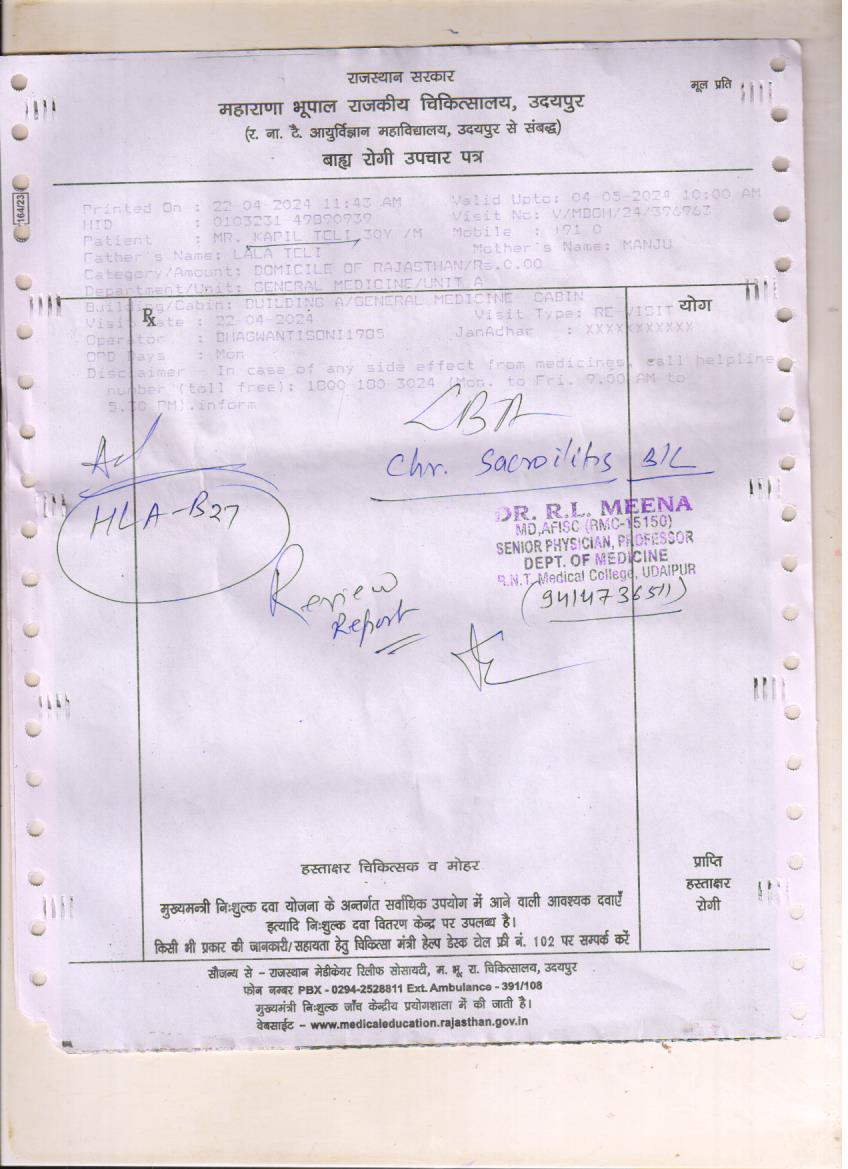 राजस्थान सरकार
मूल प्रति
महाराणा भूपाल राजकीय चिकित्सालय, उदयपुर
(र. ना. टै. आयुर्विज्ञान महाविद्यालय, उदयपुर से संबद्ध)
बाह्य रोगी उपचार पत्र
164/23
Printed On : 22-04-2024 11:43 AM Valid Upto: 04-05-2024 10:00 AM
HID : 0103231-49890939 Visit No: V/MBGH/24/396963
Patient : MR. KAPIL TELI 30Y /M Mobile : +91 0
Father's Name: LALA TELI Mother's Name: MANJU
Category/Amount: DOMICILE OF RAJASTHAN/Rs.0.00
Department/Unit: GENERAL MEDICINE/UNIT A
Building/Cabin: BUILDING A/GENERAL MEDICINE CABIN
Visit Date : 22-04-2024 Visit Type: RE-VISIT
Operator : BHAGWANTISONI1985 JanAdhar : XXXXXXXXXXX
OPD Days : Mon
Disclaimer - In case of any side effect from medicines, call helpline
number (toll free): 1800-180-3024 (Mon. to Fri. 9.00 AM to
5.30 PM).inform
Rx
योग
LBA
Adv
Chr. Sacroilitis B/L
HLA-B27
DR. R.L. MEENA
MD,AFISC (RMC-15150)
SENIOR PHYSICIAN, PROFESSOR
DEPT. OF MEDICINE
R.N.T. Medical College, UDAIPUR
(9414736511)
Review
Report
हस्ताक्षर चिकित्सक व मोहर
प्राप्ति
हस्ताक्षर
रोगी
मुख्यमन्त्री निःशुल्क दवा योजना के अन्तर्गत सर्वाधिक उपयोग में आने वाली आवश्यक दवाएँ
इत्यादि निःशुल्क दवा वितरण केन्द्र पर उपलब्ध है।
किसी भी प्रकार की जानकारी/सहायता हेतु चिकित्सा मंत्री हेल्प डेस्क टोल फ्री नं. 102 पर सम्पर्क करें
सौजन्य से – राजस्थान मेडीकेयर रिलीफ सोसायटी, म. भू. रा. चिकित्सालय, उदयपुर
फोन नम्बर PBX - 0294-2528811 Ext. Ambulance - 391/108
मुख्यमंत्री निःशुल्क जाँच केन्द्रीय प्रयोगशाला में की जाती है।
वेबसाईट – www.medicaleducation.rajasthan.gov.in